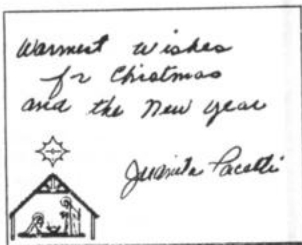 Warmest wishes
for Christmas
and the New year
Juanita Pacetti